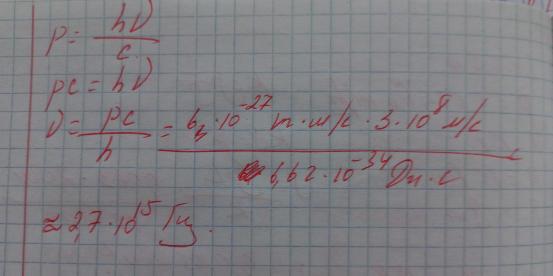 p = hν/c
pc = hν
ν = pc/h = 6 · 10⁻²⁷ · м/с · 3 · 10⁸ м/с / 6,62 · 10⁻³⁴ Дж · с
≈ 2,7 · 10¹⁵ Гц.